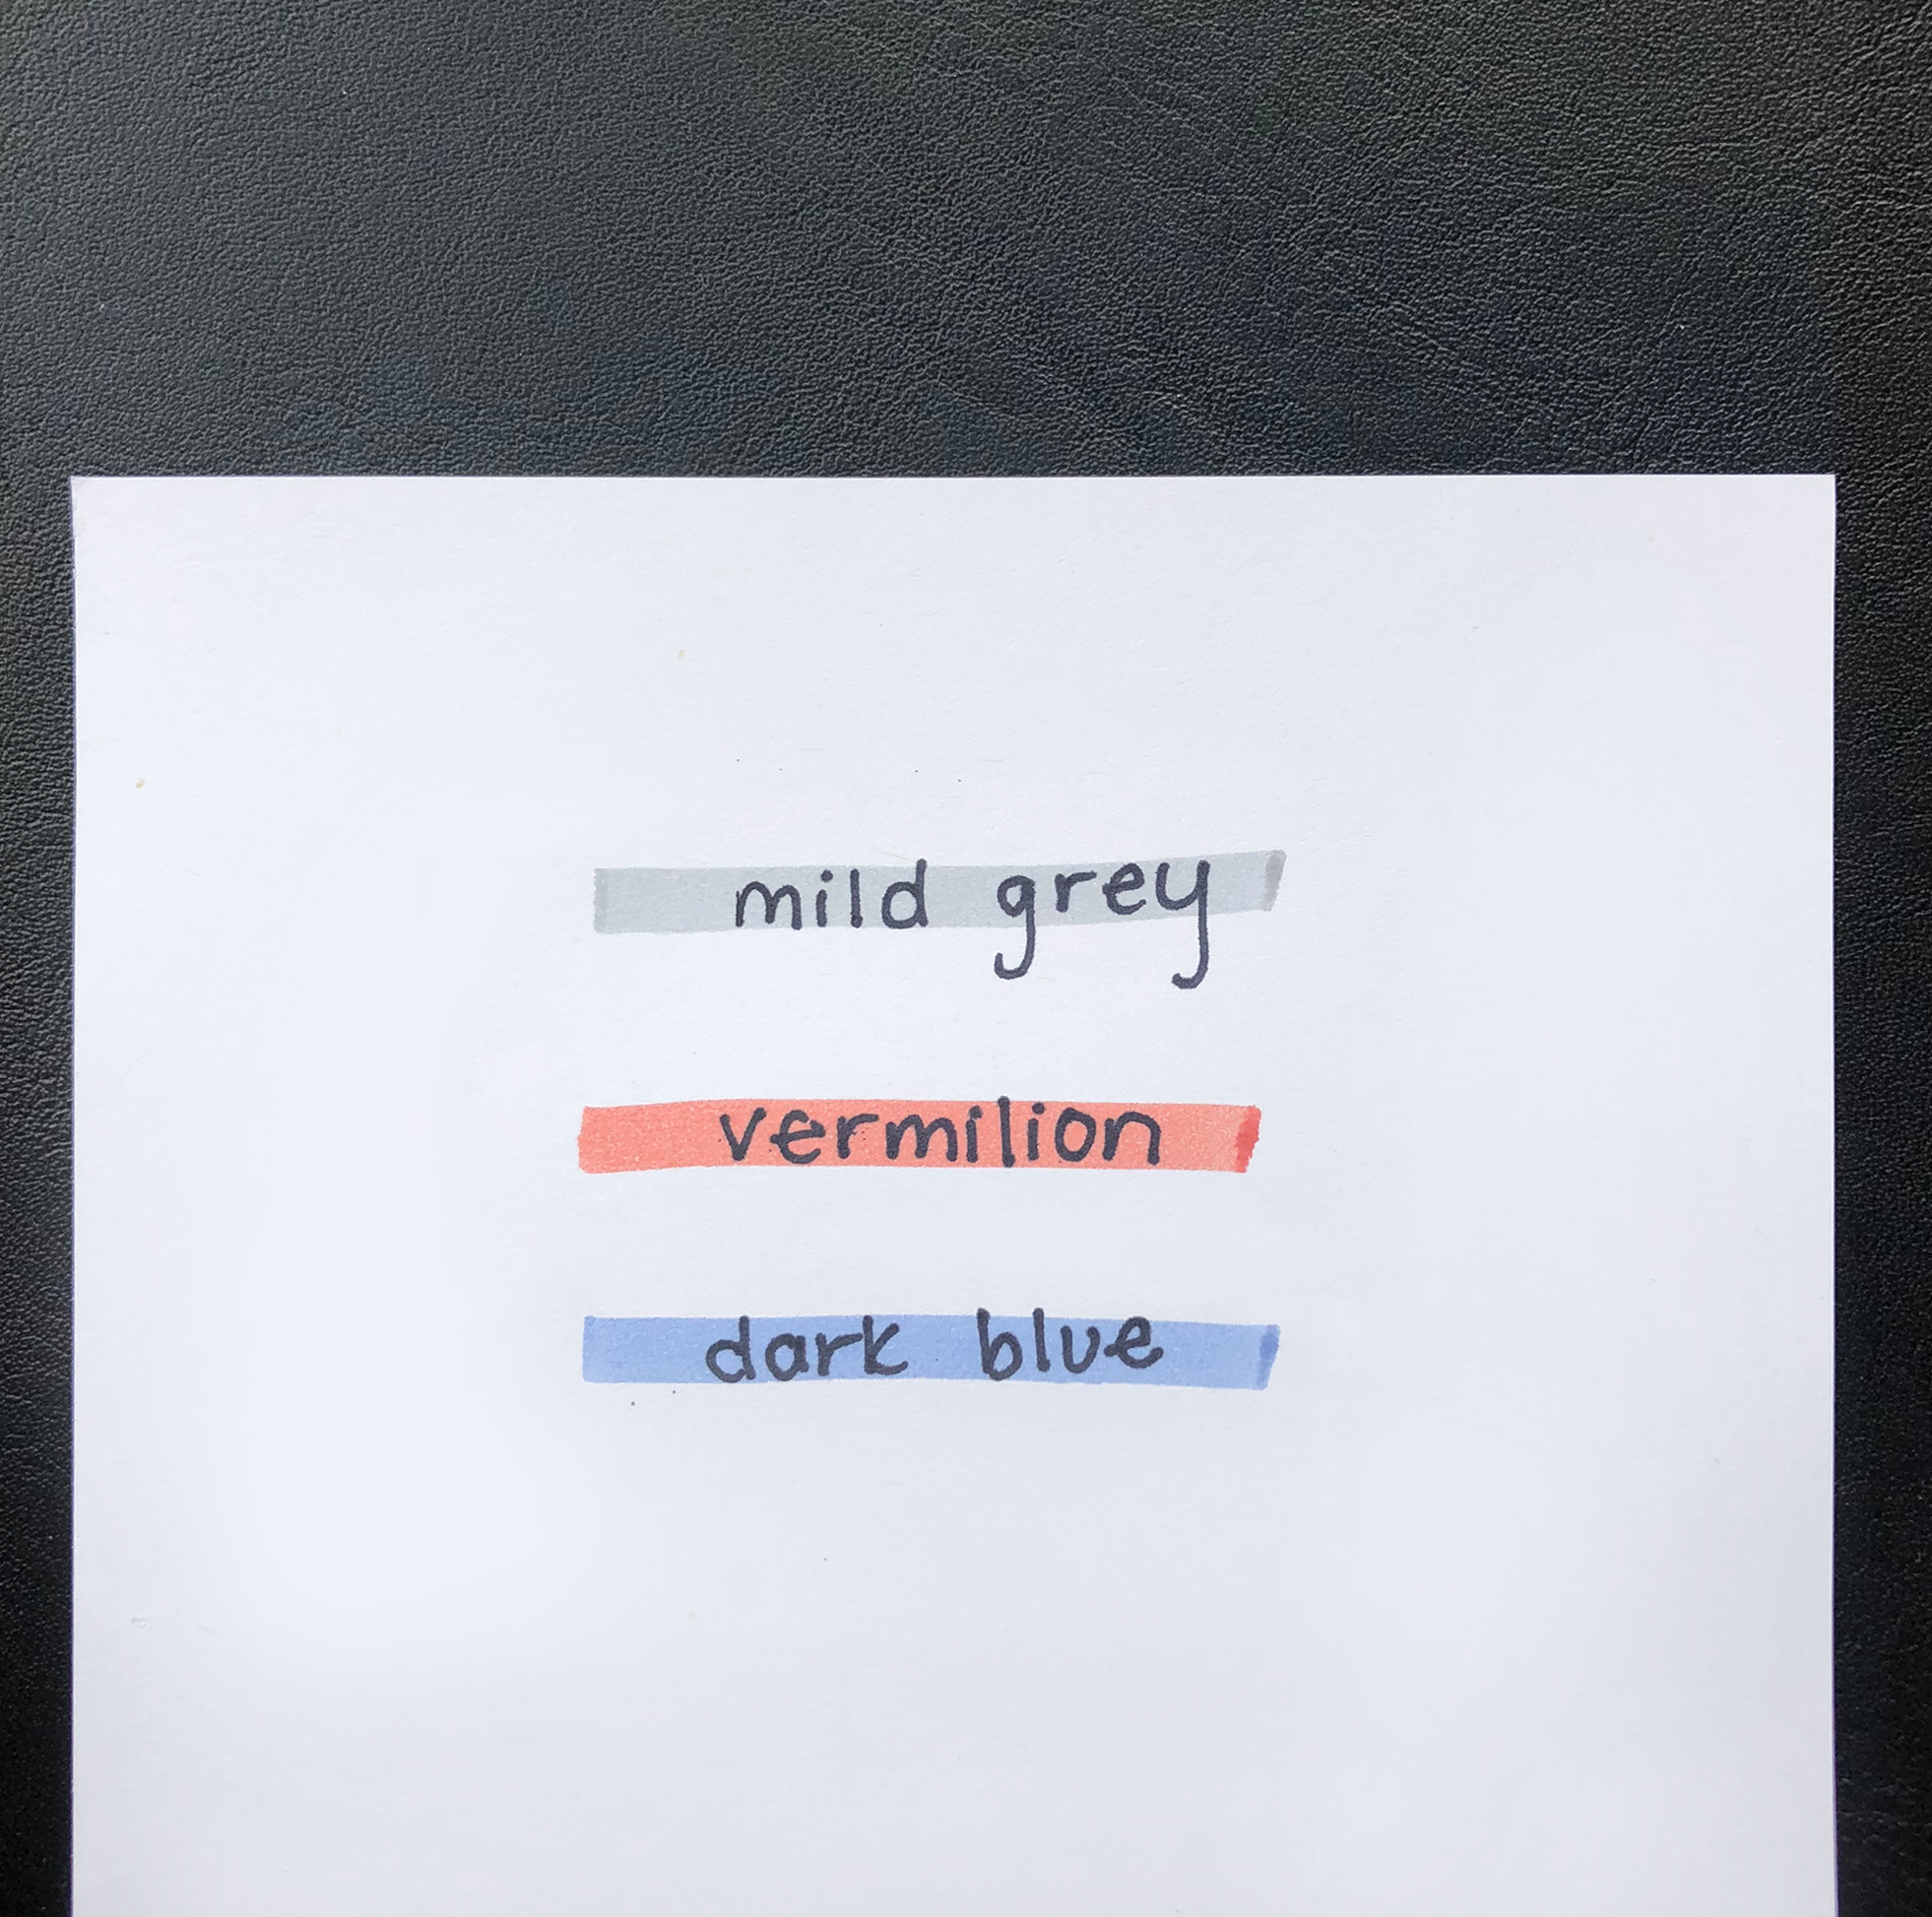 mild grey
vermilion
dark blue